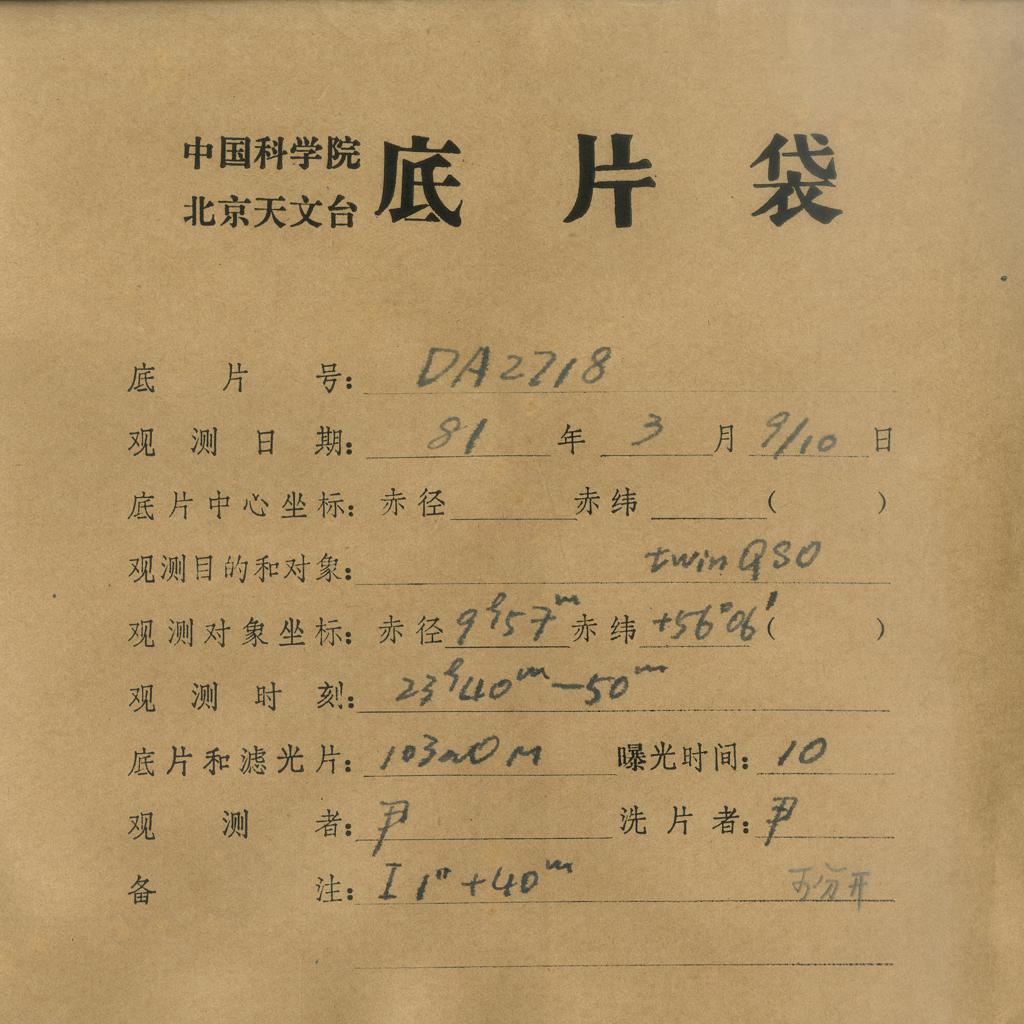 中国科学院
北京天文台
底片袋
底片号: DA2718
观测日期: 81年3月9/10日
底片中心坐标: 赤径 赤纬 ( )
观测目的和对象: twin QSO
观测对象坐标: 赤径 9h57m 赤纬 +56°06′ ( )
观测时刻: 23h40m—50m
底片和滤光片: 103aO 曝光时间: 10
观测者: 尹 洗片者: 尹
备注: I 1" +40m 可分开